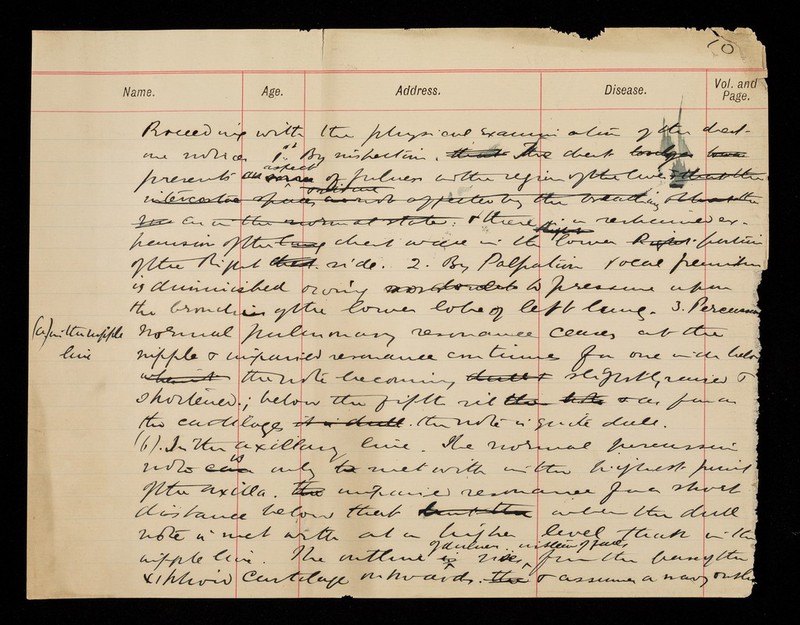 70
Name. Age. Address. Disease. Vol. and Page.
Proceeding with the physical examination of the chest
one notices 1st By inspection. that The chest
aspect
presents an of fulness in the region of the liver that the
intercostal spaces are not affected by the breathing
as in the normal state. & there is a restrained ex-
pansion of the lung chest wall in the lower Right portion
of the Right chest side. 2. By Palpation vocal fremitus
is diminished owing to pressure upon
the bronchi of the lower lobe of left lung. 3. Percussion
(a) in the nipple
line
normal pulmonary resonance ceases at the
nipple & impaired resonance continues for one inch below
the note becoming dull & slightly raised &
shortened; below the fifth rib the note & as far as
the cartilages it is dull. the note is quite dull.
(b). In the axillary line. The normal percussion
note is only to met with in the highest point
of the axilla. The impaired resonance for a short
distance below that when the dull
note is met with at a higher level than in the
of dulness instead of
nipple line. The outline is rises, from the base of the
xiphoid cartilage onwards. the & assumes a wavy outline